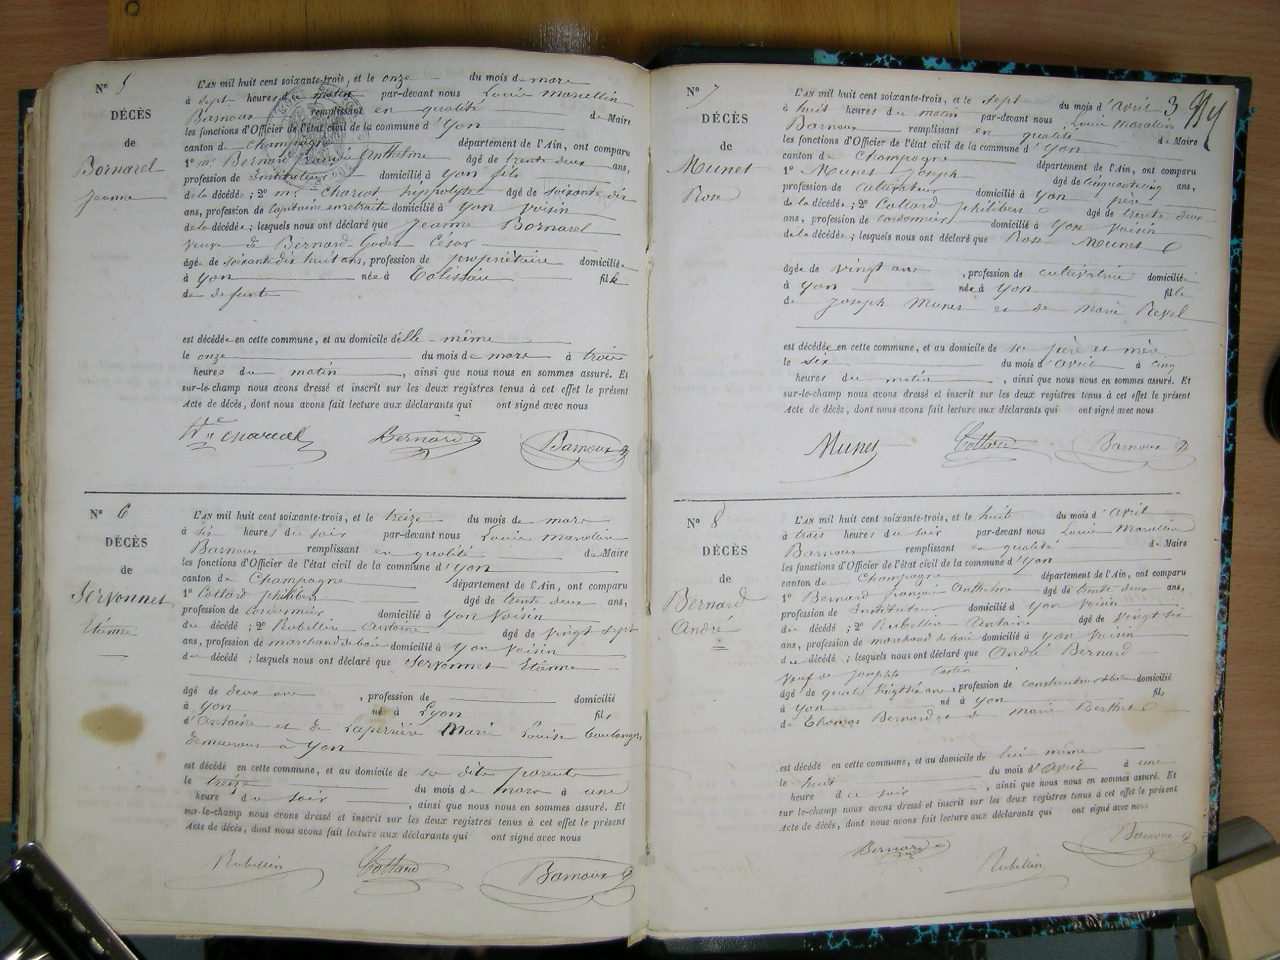 Nº 5
DÉCÈS
de
Bornarel
Jeanne
L'AN mil huit cent soixante-trois, et le onze du mois de mars
à sept heures du matin par-devant nous Louis Marcellin
Barnoux remplissant en qualité de Maire
les fonctions d'Officier de l'état civil de la commune d'Yon
canton de Champagne département de l'Ain, ont comparu
1º Mr Bernard françois Anthelme âgé de trente deux ans,
profession de Instituteur domicilié à Yon fils
de la décédée ; 2º Mr Charcot hippolyte âgé de soixante dix
ans, profession de Capitaine en retraite domicilié à Yon voisin
de la décédée ; lesquels nous ont déclaré que Jeanne Bornarel
veuve de Bernard César
âgée de soixante dix huit ans, profession de propriétaire domiciliée
à Yon née à Colissieu fille
de defunts
est décédée en cette commune, et au domicile d'elle même
le onze du mois de mars à trois
heures du matin , ainsi que nous nous en sommes assuré. Et
sur-le-champ nous avons dressé et inscrit sur les deux registres tenus à cet effet le présent
Acte de décès, dont nous avons fait lecture aux déclarants qui ont signé avec nous
Bernard Barnoux
Nº 6
DÉCÈS
de
Servonnet
Etienne
L'AN mil huit cent soixante-trois, et le treize du mois de mars
à six heures du soir par-devant nous Louis Marcellin
Barnoux remplissant en qualité de Maire
les fonctions d'Officier de l'état civil de la commune d'Yon
canton de Champagne département de l'Ain, ont comparu
1º Collard philibert âgé de trente deux ans,
profession de cordonnier domicilié à Yon Voisin
du décédé ; 2º Rubellin Antoine âgé de vingt sept
ans, profession de marchand de bois domicilié à Yon voisin
du décédé ; lesquels nous ont déclaré que Servonnet Etienne
âgé de deux ans , profession de domicilié
à Yon né à Lyon fils
d'Antoine et de Marie Louise
demeurant à Yon
est décédé en cette commune, et au domicile de parents
le treize du mois de mars à une
heure du soir , ainsi que nous nous en sommes assuré. Et
sur-le-champ nous avons dressé et inscrit sur les deux registres tenus à cet effet le présent
Acte de décès, dont nous avons fait lecture aux déclarants qui ont signé avec nous
Rubellin Collard Barnoux
3
Nº 7
DÉCÈS
de
Munet
Rose
L'AN mil huit cent soixante-trois, et le sept du mois d'avril
à huit heures du matin par-devant nous Louis Marcellin
Barnoux remplissant en qualité de Maire
les fonctions d'Officier de l'état civil de la commune d'Yon
canton de Champagne département de l'Ain, ont comparu
1º Munet Joseph âgé de cinquante cinq ans,
profession de cultivateur domicilié à Yon père
de la décédée ; 2º Collard philibert âgé de trente deux
ans, profession cordonnier domicilié à Yon voisin
de la décédée ; lesquels nous ont déclaré que Rose Munet
âgée de vingt ans , profession de cultivatrice domiciliée
à Yon née à Yon fille
de Joseph Munet et de Marie Revel
est décédée en cette commune, et au domicile de ses père et mère
le six du mois d'avril à cinq
heures du matin , ainsi que nous nous en sommes assuré. Et
sur-le-champ nous avons dressé et inscrit sur les deux registres tenus à cet effet le présent
Acte de décès, dont nous avons fait lecture aux déclarants qui ont signé avec nous
Munet Collard Barnoux
Nº 8
DÉCÈS
de
Bernard
André
L'AN mil huit cent soixante-trois, et le huit du mois d'avril
à trois heures du soir par-devant nous Louis Marcellin
Barnoux remplissant en qualité de Maire
les fonctions d'Officier de l'état civil de la commune d'Yon
canton de Champagne département de l'Ain, ont comparu
1º Bernard françois Anthelme âgé de trente deux ans,
profession de Instituteur domicilié à Yon voisin
du décédé ; 2º Rubellin Antoine âgé de vingt six
ans, profession de marchand de bois domicilié à Yon voisin
du décédé ; lesquels nous ont déclaré que André Bernard
veuf de
âgé de quatre vingt ans, profession de domicilié
à Yon né à Yon fils
de Thomas Bernard et de Marie Berthet
est décédé en cette commune, et au domicile de lui même
le huit du mois d'avril à une
heure du soir , ainsi que nous nous en sommes assuré. Et
sur-le-champ nous avons dressé et inscrit sur les deux registres tenus à cet effet le présent
Acte de décès, dont nous avons fait lecture aux déclarants qui ont signé avec nous
Bernard Rubellin Barnoux